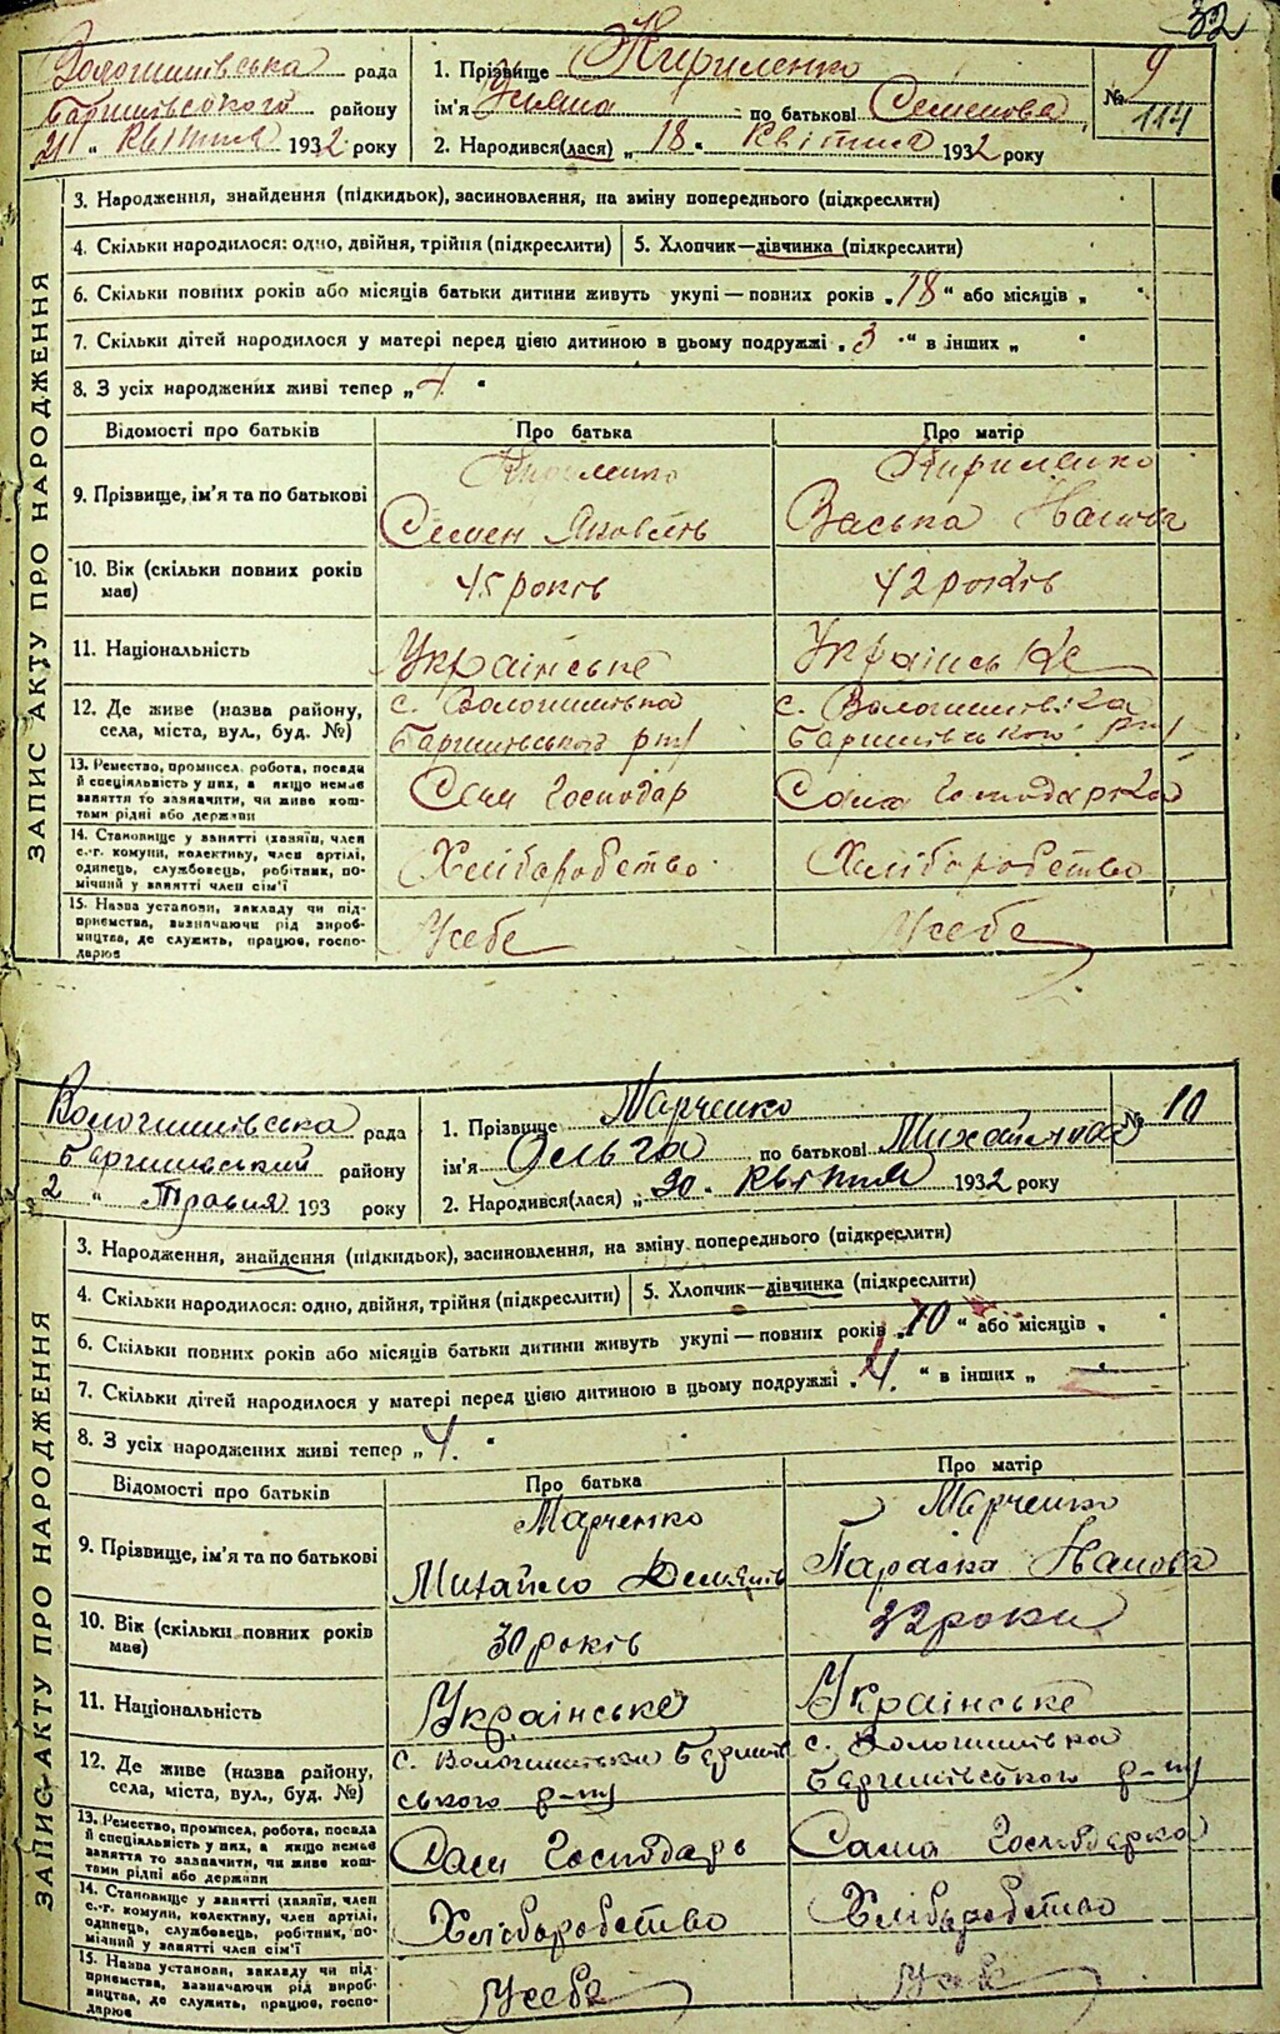 32
Вологишивська рада
Баришівського району
21 " Квітня 1932 року
1. Прізвище Кириленко
ім'я Уляна по батькові Семенова
2. Народився(лася) „ 18 " Квітня 1932 року
№ 9
114
ЗАПИС АКТУ ПРО НАРОДЖЕННЯ
3. Народження, знайдення (підкидьок), засиновлення, на зміну попереднього (підкреслити)
4. Скільки народилося: одно, двійня, трійня (підкреслити)
5. Хлопчик—дівчинка (підкреслити)
6. Скільки повних років або місяців батьки дитини живуть укупі — повних років „ 18 " або місяців „ "
7. Скільки дітей народилося у матері перед цією дитиною в цьому подружжі „ 3 " в інших „ "
8. З усіх народжених живі тепер „ 4 "
Відомості про батьків Про батька Про матір
9. Прізвище, ім'я та по батькові
Кириленко
Семен Яковлів
Кириленко
Васька Іванова
10. Вік (скільки повних років має)
45 років
42 років
11. Національність
Українське
Українське
12. Де живе (назва району,
села, міста, вул., буд. №)
с. Вологишівка
Баришівського р-ну
с. Вологишівка
Баришівського р-ну
13. Ремество, промисел, робота, посада
й спеціяльність у них, а якщо немає
заняття то зазначити, чи живе кош-
тами рідні або держави
Сам Господар
Сама Господарка
14. Становище у занятті (хазяїн, член
с.-г. комуни, колективу, член артілі,
одинець, службовець, робітник, по-
мічний у занятті член сім'ї
Хліборобство
Хліборобство
15. Назва установи, закладу чи під-
приємства, визначаючи рід вироб-
ництва, де служить, працює, госпо-
дарює
Усебе
Усебе
Вологишивська рада
Баришівський району
2 " Травня 193 року
1. Прізвище Марченко
ім'я Ольга по батькові Михайлова
2. Народився(лася) „ 30 " Квітня 1932 року
№ 10
ЗАПИС АКТУ ПРО НАРОДЖЕННЯ
3. Народження, знайдення (підкидьок), засиновлення, на зміну попереднього (підкреслити)
4. Скільки народилося: одно, двійня, трійня (підкреслити)
5. Хлопчик—дівчинка (підкреслити)
6. Скільки повних років або місяців батьки дитини живуть укупі — повних років „ 10 " або місяців „ "
7. Скільки дітей народилося у матері перед цією дитиною в цьому подружжі „ 4. " в інших „ — "
8. З усіх народжених живі тепер „ 4. "
Відомості про батьків Про батька Про матір
9. Прізвище, ім'я та по батькові
Марченко
Михайло Демянів
Марченко
Параска Іванова
10. Вік (скільки повних років має)
30 років
32 роки
11. Національність
Українське
Українське
12. Де живе (назва району,
села, міста, вул., буд. №)
с. Вологишівки Баришів
ського р-ну
с. Вологишівка
Баришівського р-ну
13. Ремество, промисел, робота, посада
й спеціяльність у них, а якщо немає
заняття то зазначити, чи живе кош-
тами рідні або держави
Сам Господарь
Сама Господарка
14. Становище у занятті (хазяїн, член
с.-г. комуни, колективу, член артілі,
одинець, службовець, робітник, по-
мічний у занятті член сім'ї
Хліборобство
Хліборобство
15. Назва установи, закладу чи під-
приємства, зазначаючи рід вироб-
ництва, де служить, працює, госпо-
дарює
Усебе
Усебе